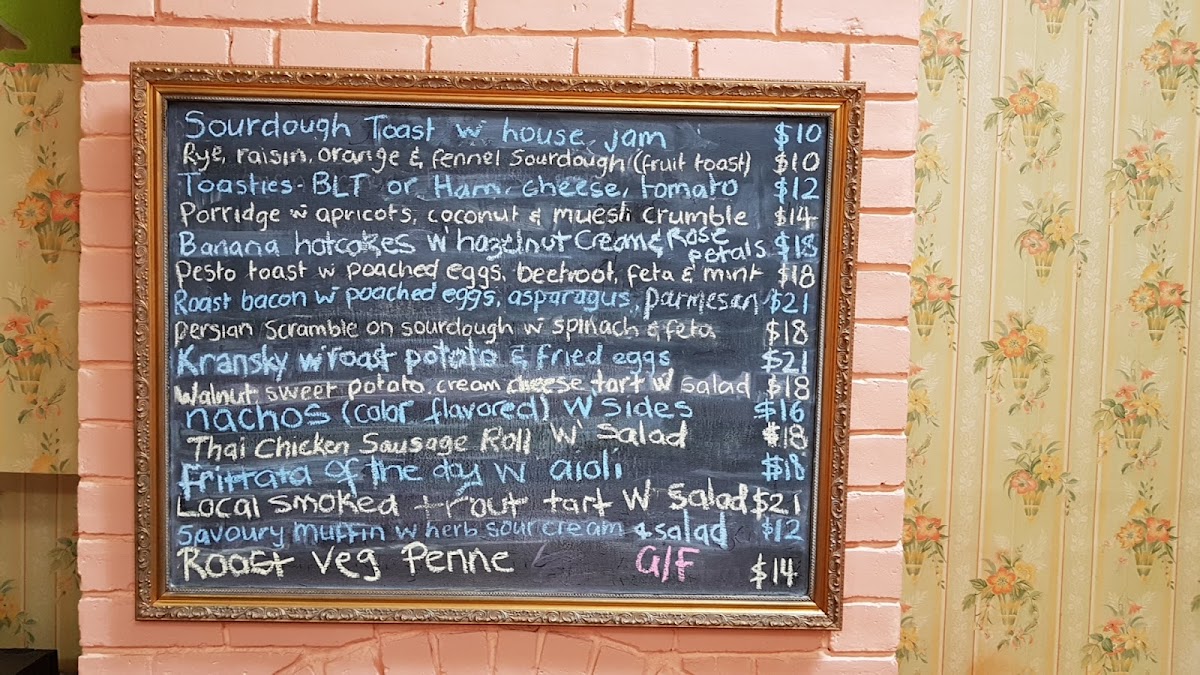 Sourdough Toast w house jam $10
Rye, raisin, orange & fennel sourdough (fruit toast) $10
Toasties - BLT or Ham, cheese, tomato $12
Porridge w apricots, coconut & muesli crumble $14
Banana hotcakes w hazelnut cream & Rose petals $18
Pesto toast w poached eggs, beetroot, feta & mint $18
Roast bacon w poached eggs, asparagus, parmesan $21
persian scramble on sourdough w spinach & feta $18
Kransky w roast potato & fried eggs $21
Walnut, sweet potato, cream cheese tart w salad $18
nachos (color flavored) w sides $16
Thai Chicken Sausage Roll w salad $18
Frittata of the day w aioli $18
Local smoked trout tart w salad $21
Savoury muffin w herb sour cream & salad $12
Roast veg Penne G/F $14